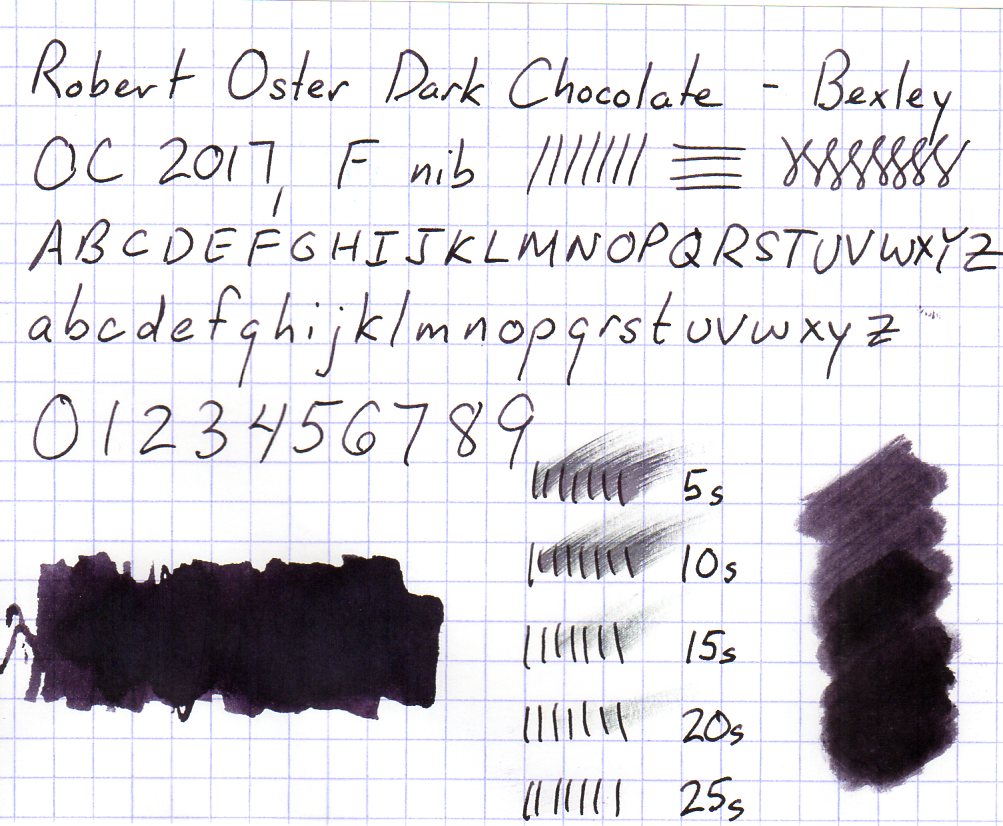 Robert Oster Dark Chocolate - Bexley
OC 2017, F nib
ABCDEFGHIJKLMNOPQRSTUVWXYZ
abcdefghijklmnopqrstuvwxyz
0123456789
5s
10s
15s
20s
25s